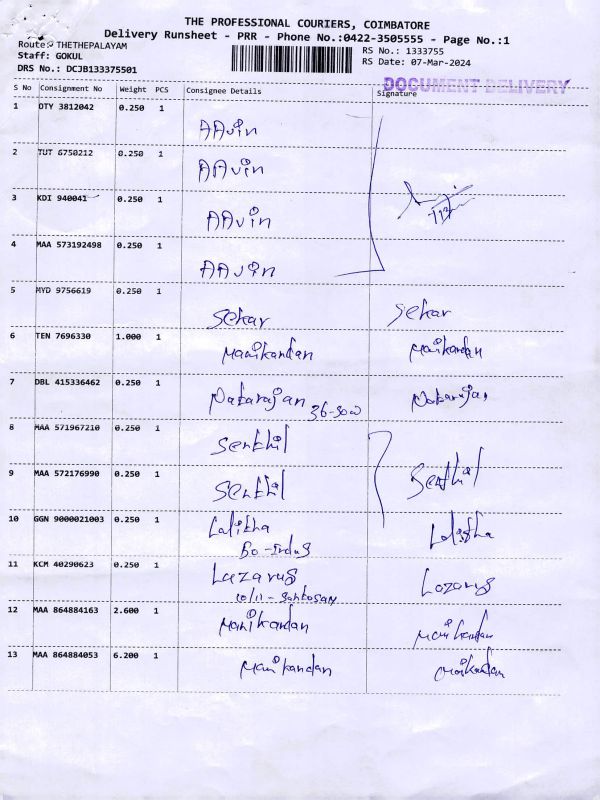 THE PROFESSIONAL COURIERS, COIMBATORE
Delivery Runsheet - PRR - Phone No.:0422-3505555 - Page No.:1
Route: THETHEPALAYAM
Staff: GOKUL
DRS No.: DCJB133375501
RS No.: 1333755
RS Date: 07-Mar-2024
DOCUMENT DELIVERY
S No Consignment No Weight PCS Consignee Details Signature
1 DTY 3812042 0.250 1
AAvin
2 TUT 6750212 0.250 1
AAvin
3 KDI 940041 0.250 1
AAvin
4 MAA 573192498 0.250 1
AAvin
5 MYD 9756619 0.250 1
Sekar Sekar
6 TEN 7696330 1.000 1
Manikandan Manikandan
7 DBL 415336462 0.250 1
Natarajan Natarajan
8 MAA 571967210 0.250 1
Senthil
9 MAA 572176990 0.250 1
Senthil Senthil
10 GGN 9000021003 0.250 1
Lalitha Lalitha
11 KCM 40290623 0.250 1
Lazarus Lazarus
12 MAA 864884163 2.600 1
Manikandan Manikandan
13 MAA 864884053 6.200 1
Manikandan Manikandan